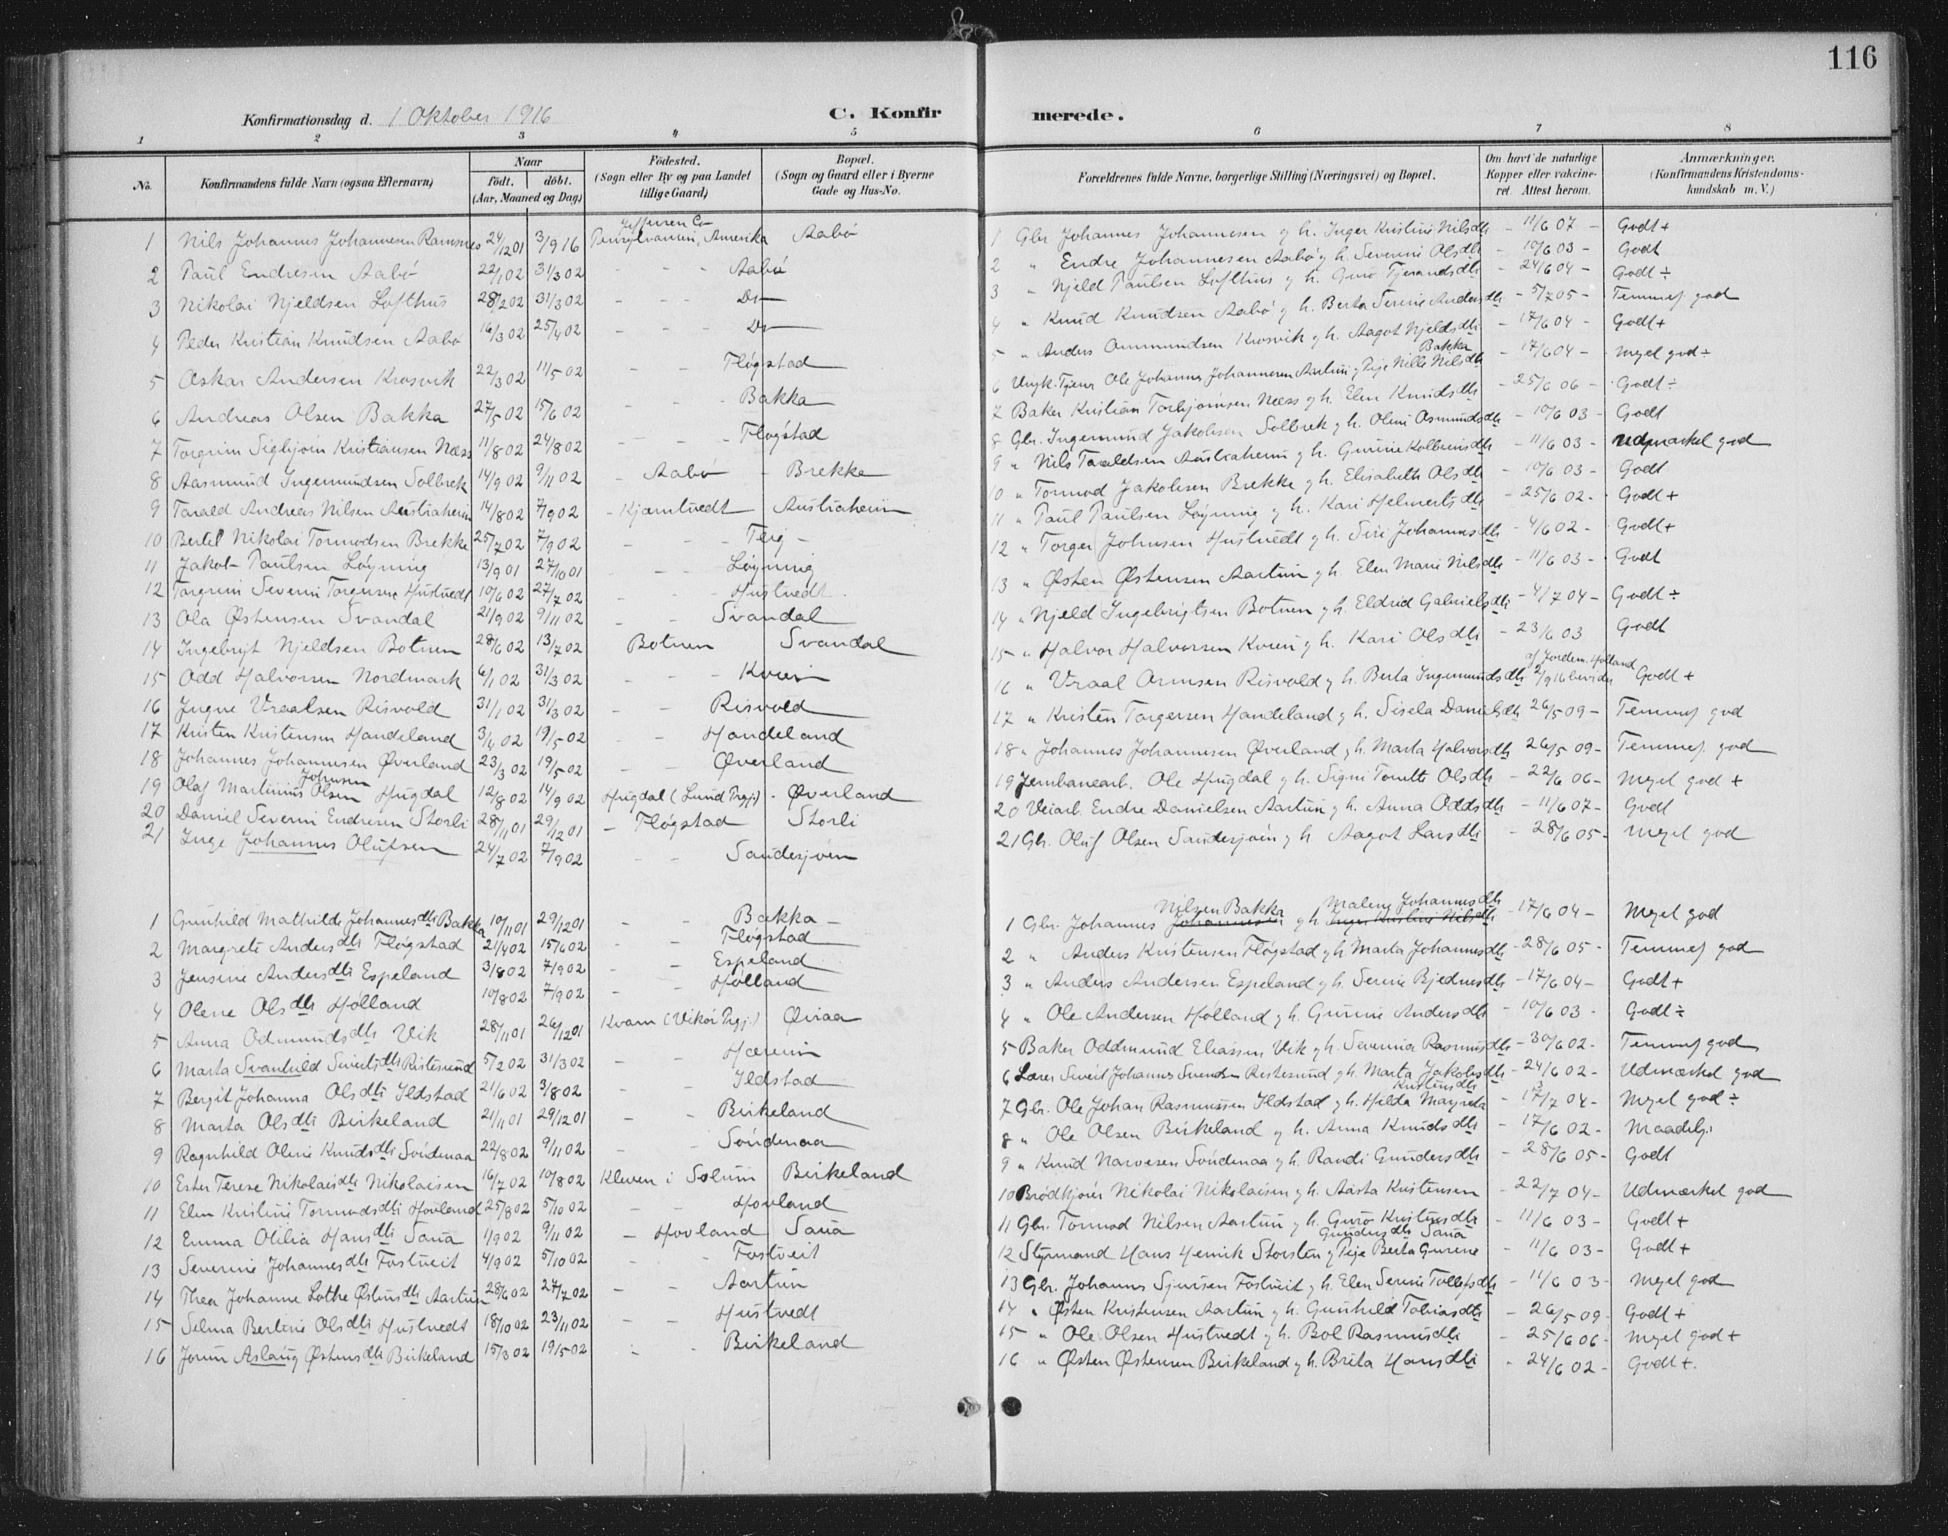 116
Konfirmationsdag d. 1 Oktober 1916
C. Konfirmerede.
1 2 3 4 5 6 7 8
No. Konfirmandens fulde Navn (ogsaa Efternavn) Naar födt. döbt. (Aar, Maaned og Dag) Födested. (Sogn eller By og paa Landet tillige Gaard) Bopæl. (Sogn og Gaard eller i Byerne Gade og Hus-No. Forældrenes fulde Navne, borgerlige Stilling (Næringsvei) og Bopæl. Om havt de naturlige Kopper eller vakcineret. Attest herom. Anmærkninger. (Konfirmandens Kristendomskundskab m. V.)
1 Nils Johannes Johannesen Ramsnes 24/12 01 3/9 16 Jefferson Co Pensylvanien, Amerika Aabø 1 Gbr Johannes Johannesen g h. Inger Kristine Nilsdtr - 11/6 07 - Godt +
2 Paul Endresen Aabø 22/1 02 31/3 02 - - - Aabø 2 " Endre Johannesen Aabø g h. Severine Olsdtr - 10/6 03 - Godt
3 Nikolai Njeldsen Lofthus 28/2 02 31/3 02 - - - Do 3 " Njeld Paulsen Lofthus g h. Guro Tjerandsdtr - 24/6 04 - Godt ÷
4 Peder Kristian Knudsen Aabø 16/3 02 25/4 02 - - - Do 4 " Knud Knudsen Aabø g h. Berta Serine Andersdtr - 5/7 05 - Temmef god
5 Oskar Andersen Krosvik 22/3 02 11/5 02 - - Fløgstad 5 " Anders Ommundsen Krosvik g h. Aagot Njeldsdtr - 17/6 04 - Godt +
6 Andreas Olsen Bakka 27/5 02 15/6 02 - - - Bakka 6 Ungk. Tjener Ole Johannes Johannesen Aartun g Pige Nille Nilsdtr Bakka - 17/6 04 - Meget god ÷
7 Torgrim Sigbjørn Kristiansen Næss 11/8 02 24/8 02 - - - Fløgstad 7 Baker Kristian Torbjørnsen Næss g h. Elen Knudsdtr - 25/6 06 - Godt ÷
8 Aasmund Ingemundsen Solbrek 14/9 02 9/11 02 - Aabø - Brekke 8 Gbr. Ingemund Jakobsen Solbrek g h. Oline Osmundsdtr - 10/6 03 - Godt
9 Tarald Andreas Nilsen Austiaheim 14/8 02 7/9 02 - Kjamtvedt Austiaheim 9 " Nils Taraldsen Austiaheim g h. Gurine Kolbeinsdtr - 11/6 03 - Udmærket god
10 Bertel Nikolai Tormodsen Brekke 25/7 02 7/9 02 - - - Teig - 10 " Tormod Jakobsen Brekke g h. Elisabeth Olsdtr - 10/6 03 - Godt
11 Jakob Paulsen Løyning 13/9 01 27/10 01 - - - Løyning 11 " Paul Paulsen Løyning g h. Kari Helmertsdtr - 25/6 02 - Godt +
12 Torgrim Severin Torgersen Hustvedt 10/6 02 27/7 02 - - - Hustvedt 12 " Torger Johnsen Hustvedt g h. Siri Johannesdtr - 4/6 02 - Godt +
13 Ola Østensen Svandal 21/9 02 9/11 02 - - Svandal 13 " Østen Østensen Aartun g h. Elen Marie Nilsdtr - 11/6 03 - Godt
14 Ingebrigt Njeldsen Botnen 28/6 02 13/7 02 Botnen Svandal 14 " Njeld Ingebrigtsen Botnen g h. Eldrid Gabrielsdtr - 4/7 04 - Godt ÷
15 Odd Halvorsen Nordmark 6/1 02 31/3 02 - - - Kvien 15 " Halvor Halvorsen Kvien g h. Kari Olsdtr - 23/6 03 Godt
16 Ingve Vraalsen Risvold 31/1 02 31/3 02 - - Risvold 16 " Vraal Ormsen Risvold g h. Berta Ingemundsdtr af Jordem. Holland 2/9 16 bevidn Godt +
17 Kristen Kristensen Handeland 3/4 02 19/5 02 - - Handeland 17 " Kristen Torgersen Handeland g h. Sisela Danielsdtr 26/5 09 - Temmef god
18 Johannes Johannesen Øverland 23/3 02 19/5 02 - - Øverland 18 " Johannes Johannesen Øverland g h. Marta Halvorsdtr - 26/5 09 - Temmef. god
19 Olaf Martinius Johnsen Olsen Hugdal 12/8 02 14/9 02 Hugdal (Lund Prgj.) - Øverland 19 Jernbanearb. Ole Hugdal g h. Signi Tonette Olsdtr - 22/6 06 - Meget god +
20 Daniel Severin Endresen Storli 28/11 01 29/12 01 - Fløgstad Storli 20 Veiarb. Endre Danielsen Aartun g h. Anna Oddsdtr - 11/6 07 - Godt
21 Inge Johannes Olufsen 24/7 02 7/9 02 - - Sandersjøen 21 Gbr. Oluf Olsen Sandersjøen g h Aagot Larsdtr - 28/6 05 - Meget god
1 Gunhild Mathilde Johannesdtr Bakka 10/11 01 29/12 01 - - Bakka - 1 Gbr. Johannes Johannesen Nilsen Bakka g h Inger Kristine Nilsdtr Malene Johannesdtr - 17/6 04 - Meget god
2 Margrete Andersdtr Fløgstad 21/4 02 15/6 02 - - Fløgstad 2 " Anders Kristensen Fløgstad g h. Marta Johannesdtr - 28/6 05 - Temmef god
3 Jensine Andersdtr Espeland 3/8 02 7/9 02 - - Espeland 3 " Anders Andersen Espeland g h. Serine Bjednesdtr - 17/6 04 - Godt +
4 Olene Olsdtr Hølland 10/8 02 7/9 02 - - Hølland 4 " Ole Andersen Hølland g h. Gurine Andersdtr - 10/6 03 - Godt ÷
5 Anna Odmundsdtr Vik 28/11 01 26/12 01 Kvam (Vikør Prgj.) Øviaa 5 Baker Oddmund Eliassen Vik g h. Severina Rasmusdtr - 30/6 02 - Temmef god
6 Marta Svanhild Sivertsdtr Ristesund 5/2 02 31/3 02 - - Hareim 6 Lærer Sivert Johannes Svendsen Ristesund g h. Marta Jakobsdtr - 24/6 02 - Udmærket god
7 Bergit Johanna Olsdtr Ildstad 21/6 02 3/8 02 - - Ildstad 7 Gbr. Ole Johan Rasmussen Ildstad g h. Helda Margreta Kristensdtr - 17/7 04 - Meget god ÷
8 Marta Olsdtr Birkeland 21/11 01 29/12 01 - - Birkeland 8 " Ole Olsen Birkeland g h. Anna Knudsdtr - 17/6 02 - Maadelg.
9 Ragnhild Oline Knudsdtr Søndenaa 22/8 02 9/11 02 - - Søndenaa 9 " Knud Narvesen Søndenaa g h. Randi Gundersdtr - 28/6 05 - Godt
10 Ester Terese Nikolaisdtr Nikolaisen 16/7 02 10/8 02 Kleven i Solum Birkeland 10 Brødkjører Nikolai Nikolaisen g h. Aasta Kristensen - 22/7 04 - Udmærket god
11 Elen Kristine Tormodsdtr Hovland 25/8 02 5/10 02 - - Hovland 11 Gbr. Tormod Nilsen Aartun g h. Guro Kristensdtr - 11/6 03 - Godt +
12 Emma Otilia Hansdtr Sana 1/9 02 9/11 02 - Hovland Sana 12 Styrmand Hans Henrik Storsten g Pige Berta Gurine Gundersdtr Sana - 11/6 03 - Godt +
13 Severine Johannesdtr Fostveit 4/9 02 5/10 02 - - Fostveit 13 Gbr. Johannes Sjursen Fostveit g h. Elen Serine Tollefsdtr - 11/6 03 - Meget god
14 Thea Johanne Lothe Østensdtr Aartun 28/6 02 27/7 02 - - Aartun 14 " Østen Kristensen Aartun g h. Gunhild Tobiasdtr - 26/5 09 - Godt +
15 Selma Bertine Olsdtr Hustvedt 18/10 02 23/11 02 - - Hustvedt 15 " Ole Olsen Hustvedt g h. Bol Rasmusdtr - 25/6 06 - Meget god +
16 Jorun Aslaug Østensdtr Birkeland 15/3 02 19/5 02 - - Birkeland 16 " Østen Østensen Birkeland g h. Brita Hansdtr - 24/6 02 - Godt +.